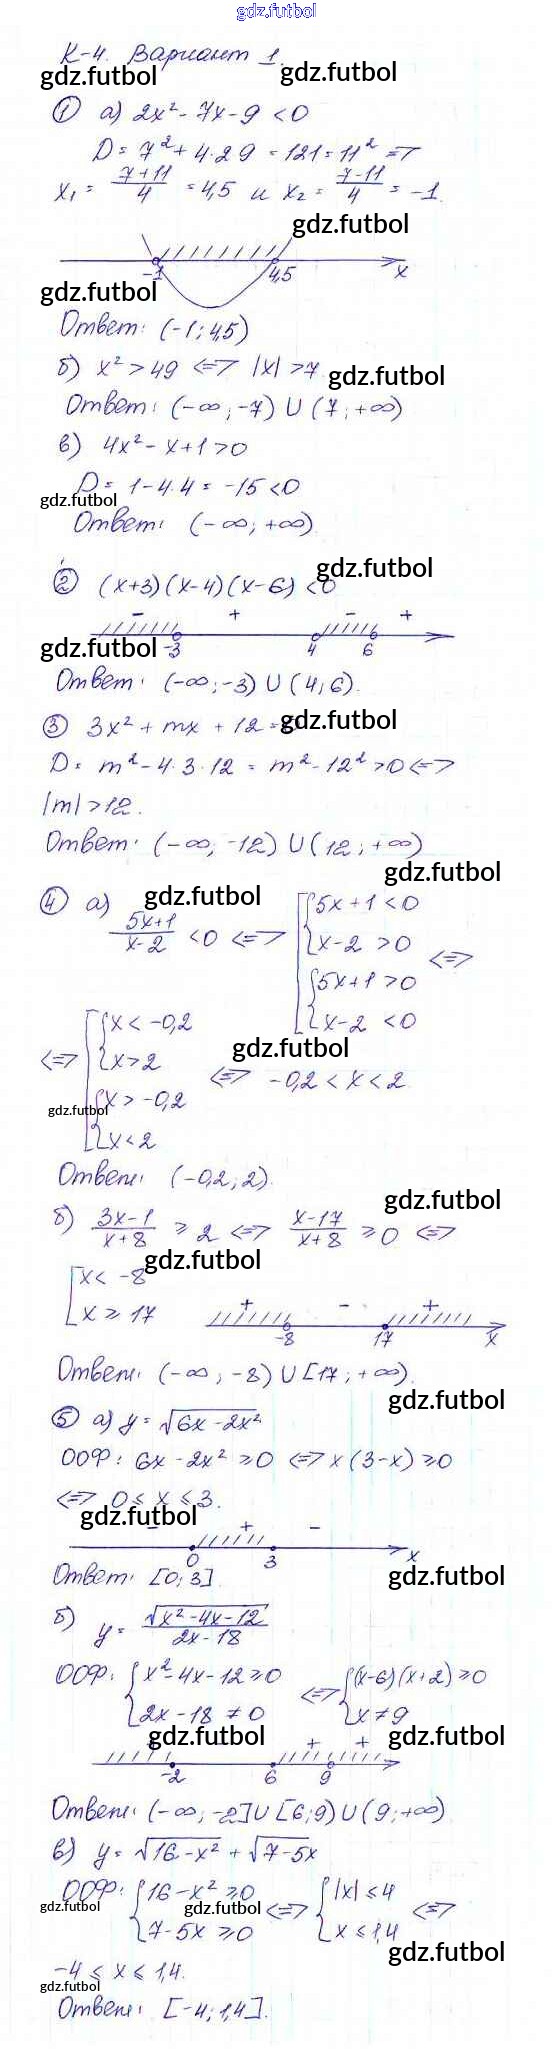 gdz.futbol
К-4. Вариант 1.
gdz.futbol gdz.futbol
① а) 2x² - 7x - 9 < 0
D = 7² + 4·2·9 = 121 = 11² =>
x₁ = (7+11)/4 = 4,5 и x₂ = (7-11)/4 = -1.
gdz.futbol
-1 4,5 x
gdz.futbol
Ответ: (-1; 4,5)
б) x² > 49 <=> |x| > 7
gdz.futbol
Ответ: (-∞; -7) U (7; +∞)
в) 4x² - x + 1 > 0
D = 1 - 4·4 = -15 < 0
gdz.futbol
Ответ: (-∞; +∞).
gdz.futbol
② (x+3)(x-4)(x-6) < 0
- + - +
-3 4 6
gdz.futbol
Ответ: (-∞; -3) U (4; 6).
③ 3x² + mx + 12 =
gdz.futbol
D = m² - 4·3·12 = m² - 12² > 0 <=>
|m| > 12.
Ответ: (-∞; -12) U (12; +∞)
gdz.futbol
④ а) (5x+1)/(x-2) < 0 <=> [ { 5x+1 < 0
gdz.futbol
x-2 > 0
{ 5x+1 > 0 <=>
x-2 < 0
<=> [ { x < -0,2
gdz.futbol
x > 2 <=> -0,2 < x < 2.
{ x > -0,2
gdz.futbol
x < 2
Ответ: (-0,2; 2).
gdz.futbol
б) (3x-1)/(x+8) ≥ 2 <=> (x-17)/(x+8) ≥ 0 <=>
gdz.futbol
[ x < -8
x ≥ 17
+ - +
-8 17 x
Ответ: (-∞; -8) U [17; +∞).
gdz.futbol
⑤ а) y = √(6x - 2x²)
ООФ: 6x - 2x² ≥ 0 <=> x(3-x) ≥ 0
<=> 0 ≤ x ≤ 3.
gdz.futbol
- + -
0 3 x
gdz.futbol
Ответ: [0; 3]
б) y = √(x² - 4x - 12)/(2x - 18)
ООФ: { x² - 4x - 12 ≥ 0 <=> { (x-6)(x+2) ≥ 0
2x - 18 ≠ 0 x ≠ 9
gdz.futbol gdz.futbol
+ +
-2 6 9
Ответ: (-∞; -2] U [6; 9) U (9; +∞)
в) y = √(16 - x²) + √(7 - 5x)
ООФ: { 16 - x² ≥ 0 <=> { |x| ≤ 4 <=>
gdz.futbol gdz.futbol
7 - 5x ≥ 0 x ≤ 1,4
gdz.futbol
-4 ≤ x ≤ 1,4.
gdz.futbol
Ответ: [-4; 1,4].